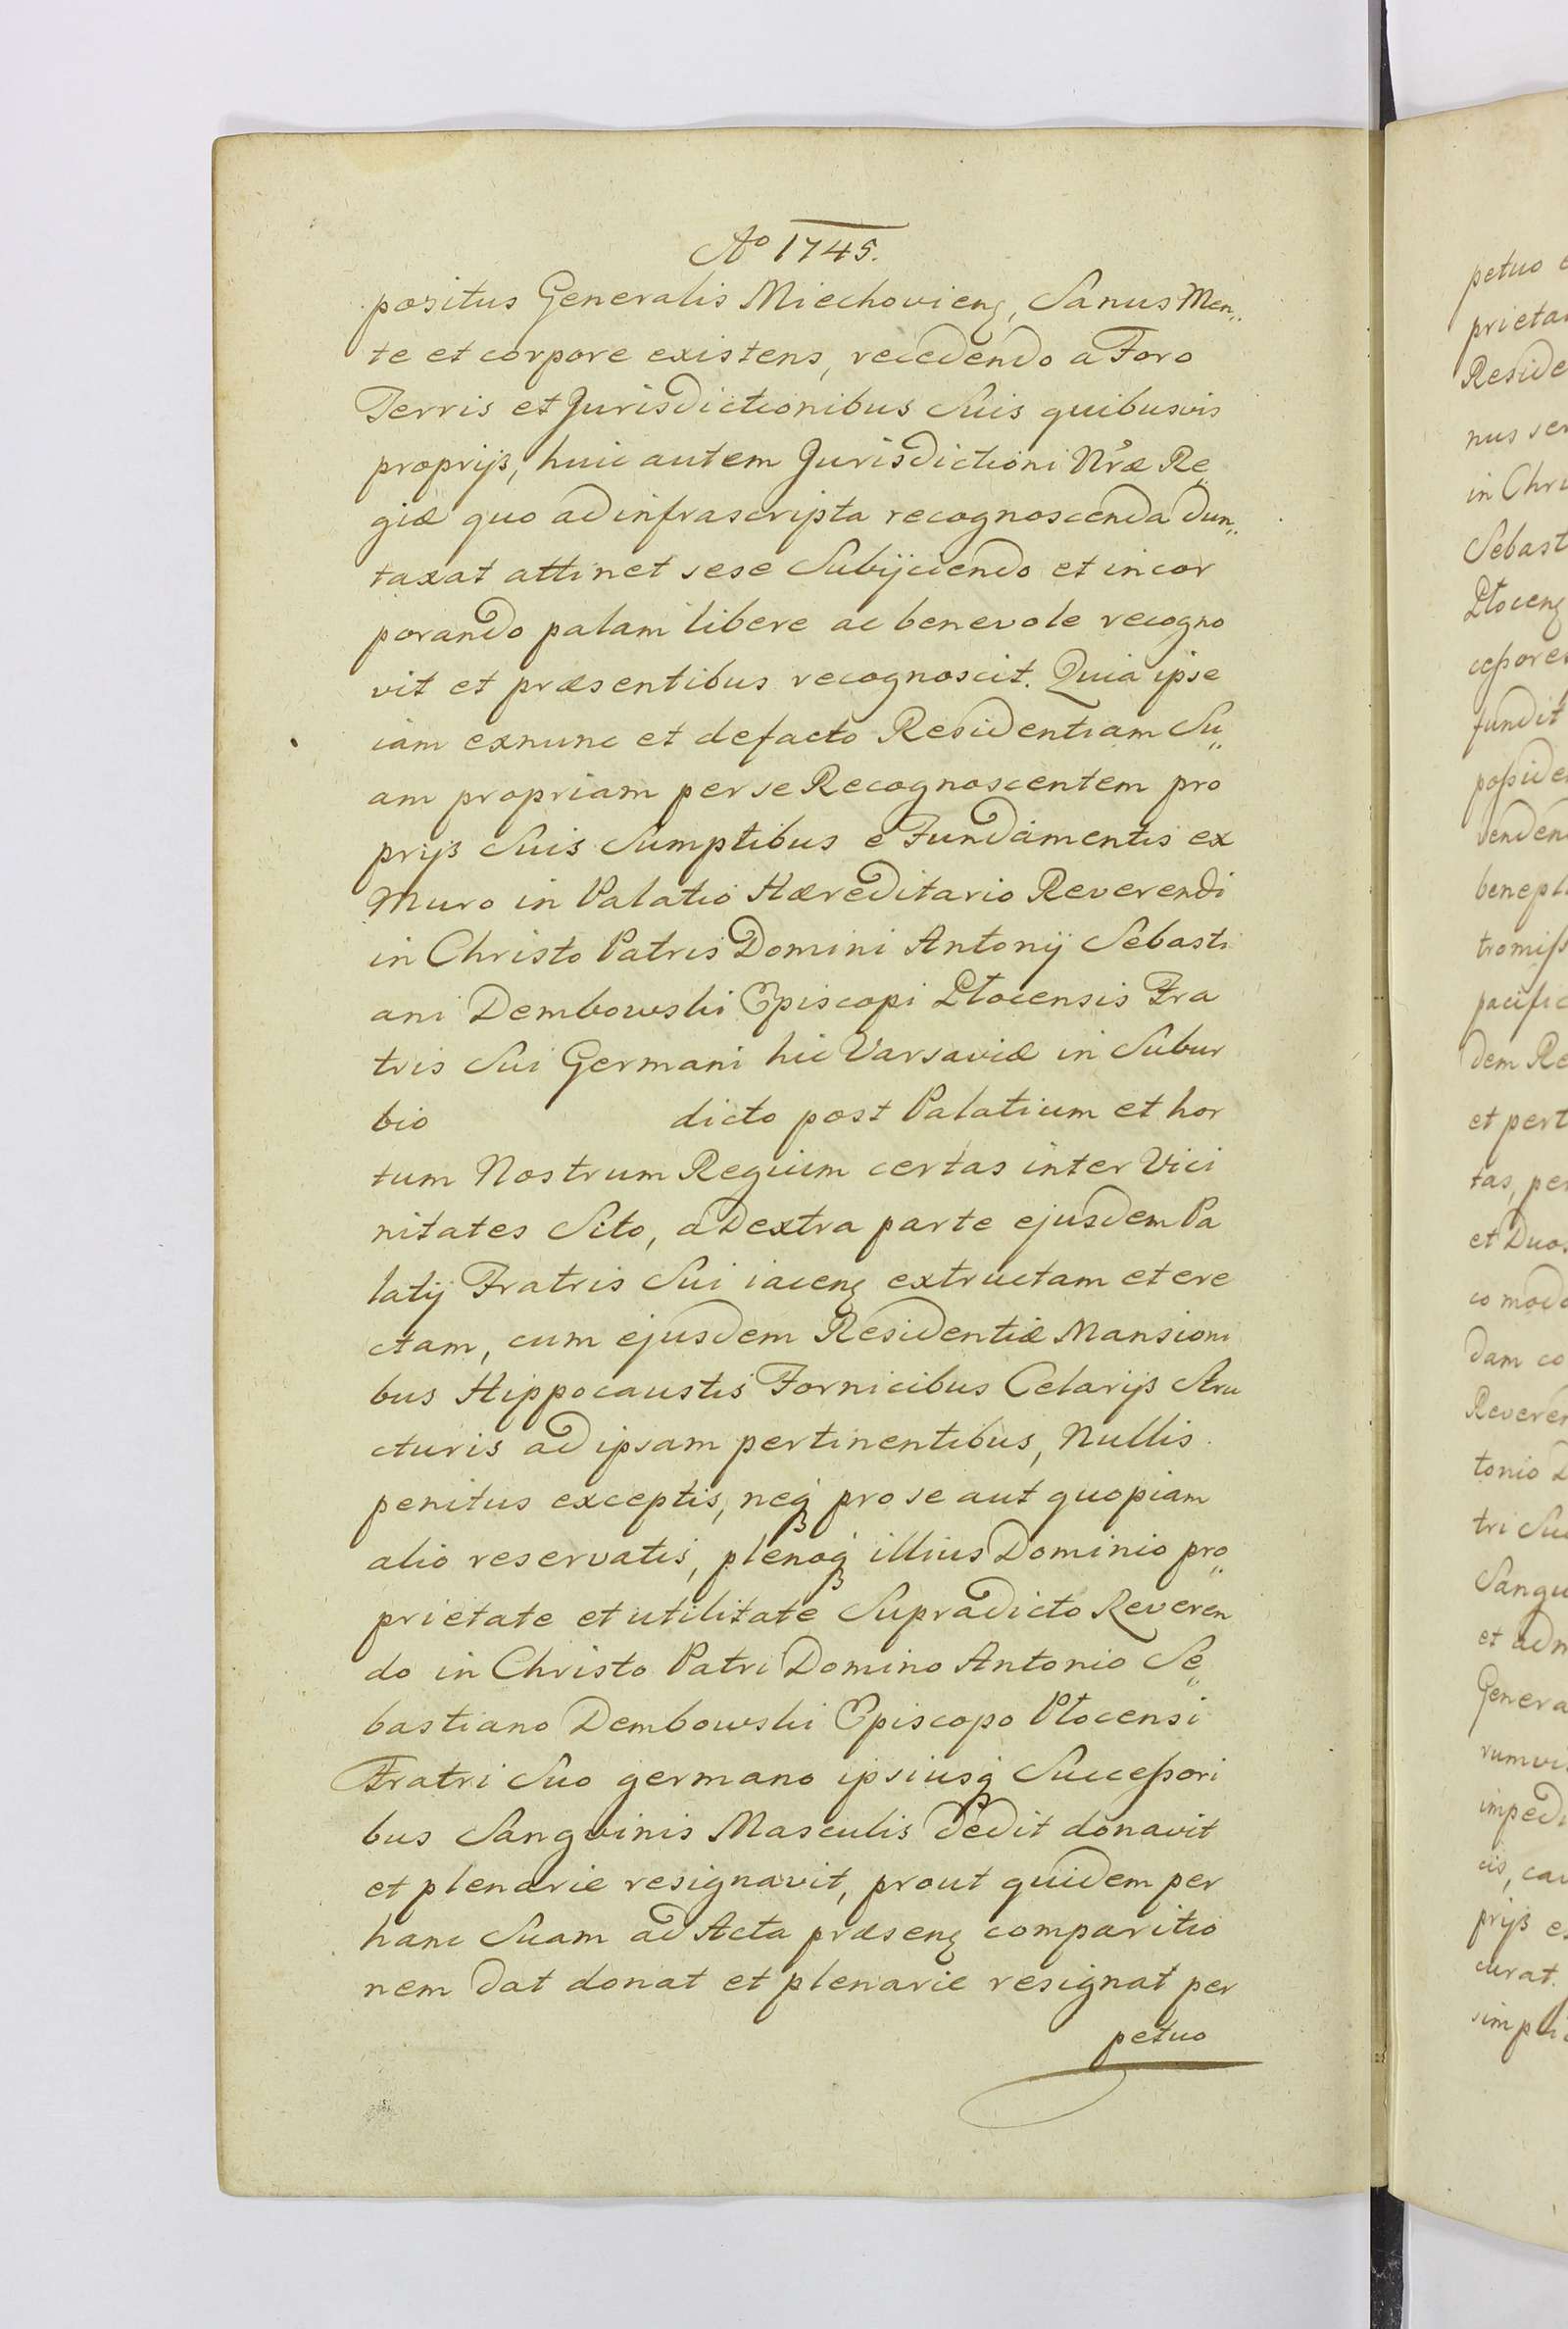 Ao 1745.
positus Generalis Miechovienʒ, Sanus Men„
te et corpore existens, recedendo a Foro
Terris et Jurisdictionibus Suis quibusvis
proprijs, huic autem Jurisdictioni Nræ Re„
giæ quo ad infrascripta recognoscenda dun„
taxat attinet sese Subijciendo et incor
porando palam libere ac benevole recogno
vit et præsentibus recognoscit. Quia ipse
iam exnunc et defacto Residentiam Su„
am propriam per se Recognoscentem pro
prijs Suis Sumptibus e Fundamentis ex
Muro in Palatio Hæreditario Reverendi
in Christo Patris Domini Antonij Sebasti
ani Dembowski Episcopi Płocensis Fra
tris Sui Germani hic Varsaviæ in Subur
bio dicto post Palatium et hor
tum Nostrum Regium certas inter Vici
nitates Sito, a Dextra parte ejusdem Pa
latij Fratris Sui iacenʒ extructam et ere
ctam, cum ejusdem Residentiæ Mansioni
bus Hippocaustis Fornicibus Celarijs Stru
cturis ad ipsam pertinentibus, Nullis
penitus exceptis, neqʒ pro se aut quopiam
alio reservatis, plenoqʒ illius Dominio pro„
prietate et utilitate Supradicto Reveren
do in Christo Patri Domino Antonio Se„
bastiano Dembowski Episcopo Płocensi
Fratri Suo germano ipsiusqʒ Succeßori
bus Sangvinis Masculis dedit donavit
et plenarie resignavit, prout quidem per
hanc Suam ad Acta præsenʒ comparitio
nem dat donat et plenarie resignat per
petuo
petuo
prieta
Reside
nus ser
in Chri
Sebast
Płocenʒ
ceßores
fundit
poßide
vendend
benepl
tromiß
pacific
dem Re
et pert
tas, per
et Duos
co modo
dam co
Reveren
tonio D
tri Suo
Sangu
et adm
Genera
rumvi
impedi
cis, cau
prijs e
curat.
simpli